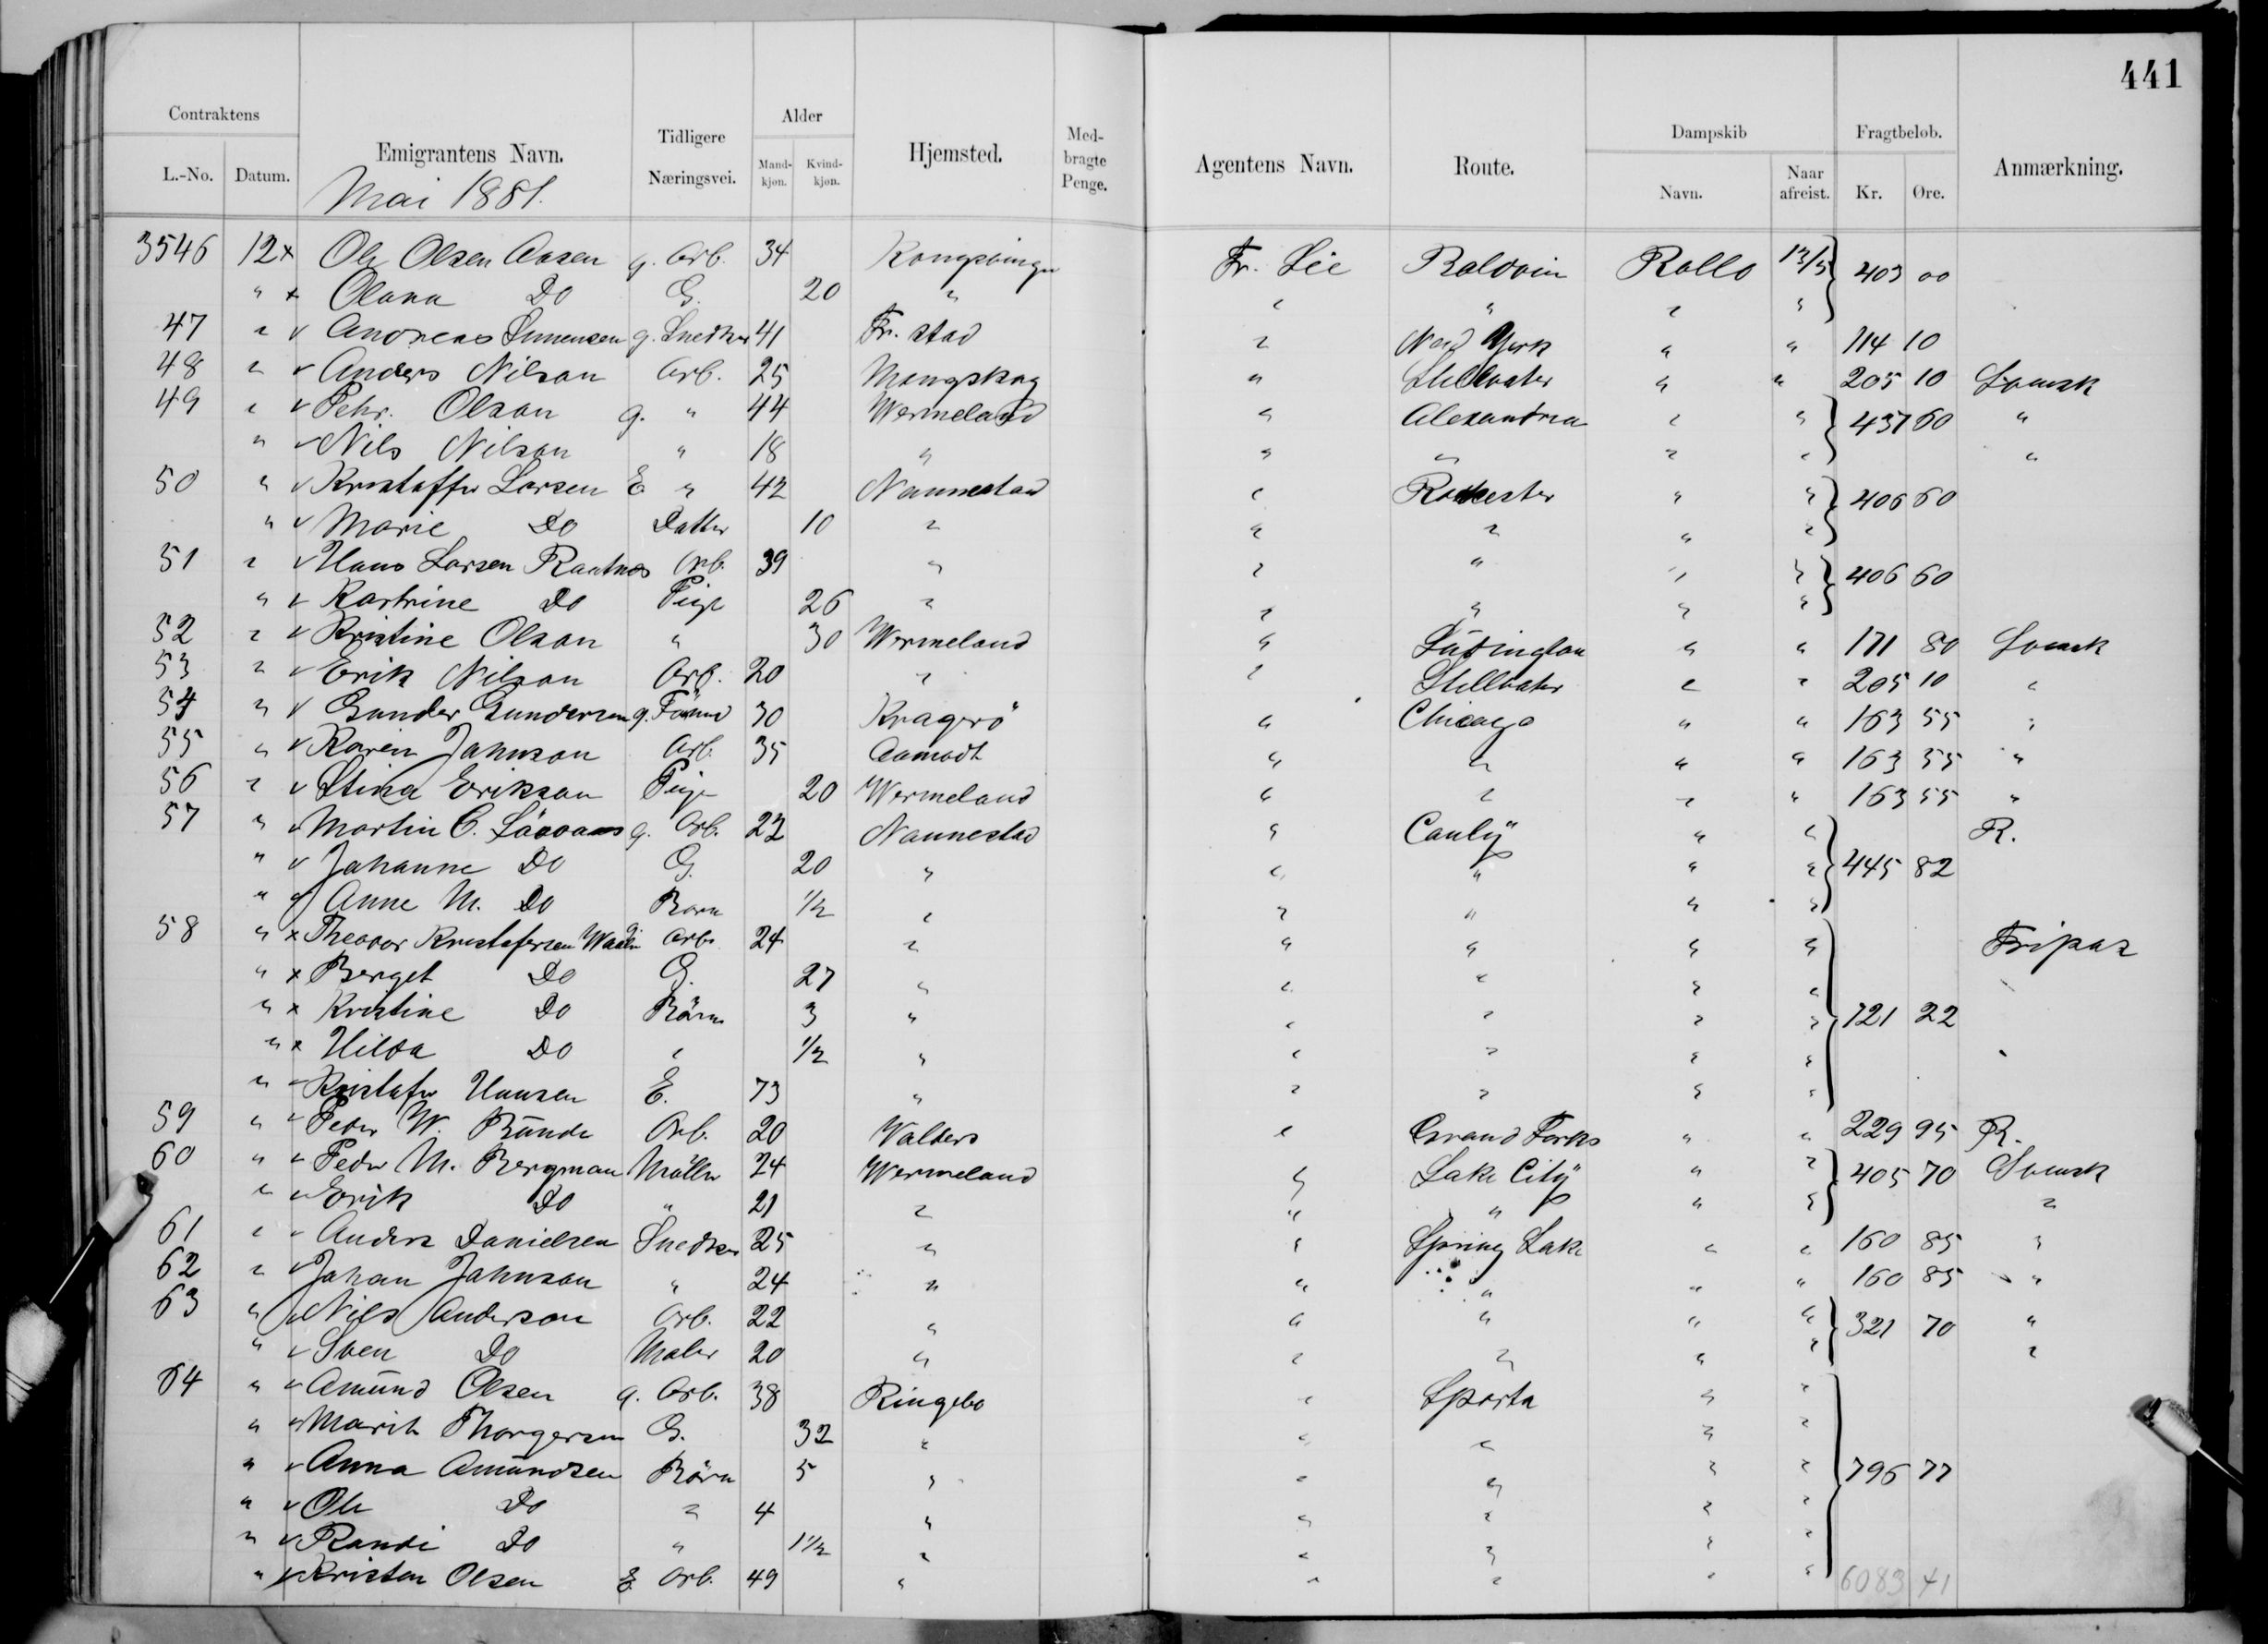 441
Contraktens Emigrantens Navn. Tidligere Næringsvei. Alder Hjemsted. Medbragte Penge. Agentens Navn. Route. Dampskib Fragtbeløb. Anmærkning.
L.-No. Datum. Mandkjøn. Kvindkjøn. Navn. Naar afreist. Kr. Øre.
Mai 1881.
3546 12 x Ole Olsen Aasen g. Arb. 34 Kongsvinger Fr. Lie Baldvin Rollo 13/5 403 00
" x Olava Do G. 20 " " " " "
47 " v Andreas Simensen g. Snedker 41 Fr. stad " New York " " 114 10
48 " v Anders Nilson Arb. 25 Mangskog " Stillwater " " 205 10 Svensk
49 " v Pehr. Olson g. " 44 Wermeland " Alexandria " " 437 60 "
" v Nils Nilson " 18 " " " " " "
50 " v Kristoffer Larsen E " 42 Nannestad " Rochester " " 406 60
" v Marie Do Datter 10 " " " " "
51 " v Hans Larsen Raatnes Arb. 39 " " " " " 406 60
" v Kartrine Do Pige 26 " " " " "
52 " v Kristine Olson " 30 Wermeland " Ludington " " 171 80 Svensk
53 " v Erik Nilson Arb. 20 " " Stillvater " " 205 10 "
54 " v Gunder Gundersen g. 30 Kragerö " Chicago " " 163 55 "
55 " v Karin Johnson Arb. 35 Aamodt " " " " 163 55 "
56 " v Stina Erikson Pige 20 Wermeland " " " " 163 55 "
57 " v Martin C. g. Arb. 22 Nannestad " Canby " " R.
" v Johanne Do G. 20 " " " " " 445 82
" v Anne M. Do Barn 1/2 " " " " "
58 " x Theodor Kristofersen g. Arb. 24 " " " " " Fripas
" x Berget Do G. 27 " " " " "
" x Kristine Do Börn 3 " " " " " 721 22
" x Hilda Do " 1/2 " " " " "
" v Kristofer Hansen E. 73 " " " " "
59 " v Peder W. Bunde Arb. 20 Valders " Grand Forks " " 229 95 R.
60 " v Peder M. Bergman Möller 24 Wermeland " Lake City " " 405 70 Svensk
" v Erik Do " 21 " " " " " "
61 " v Anders Danielsen Snedker 25 " " Spring Lake " " 160 85 "
62 " v Johan Johnson " 24 " " " " " 160 85 "
63 " v Nils Anderson Arb. 22 " " " " " 321 70 "
" v Sven Do Maler 20 " " " " " "
64 " v Amund Olsen g. Arb. 38 Ringebo " Sparta " "
" v Marit Thorgersen G. 32 " " " " "
" v Anna Amundsen Börn 5 " " " " " 796 77
" v Ole Do " 4 " " " " "
" v Randi Do " 1 1/2 " " " " "
" v Kristen Olsen E Arb. 49 " " " " " 6083 41